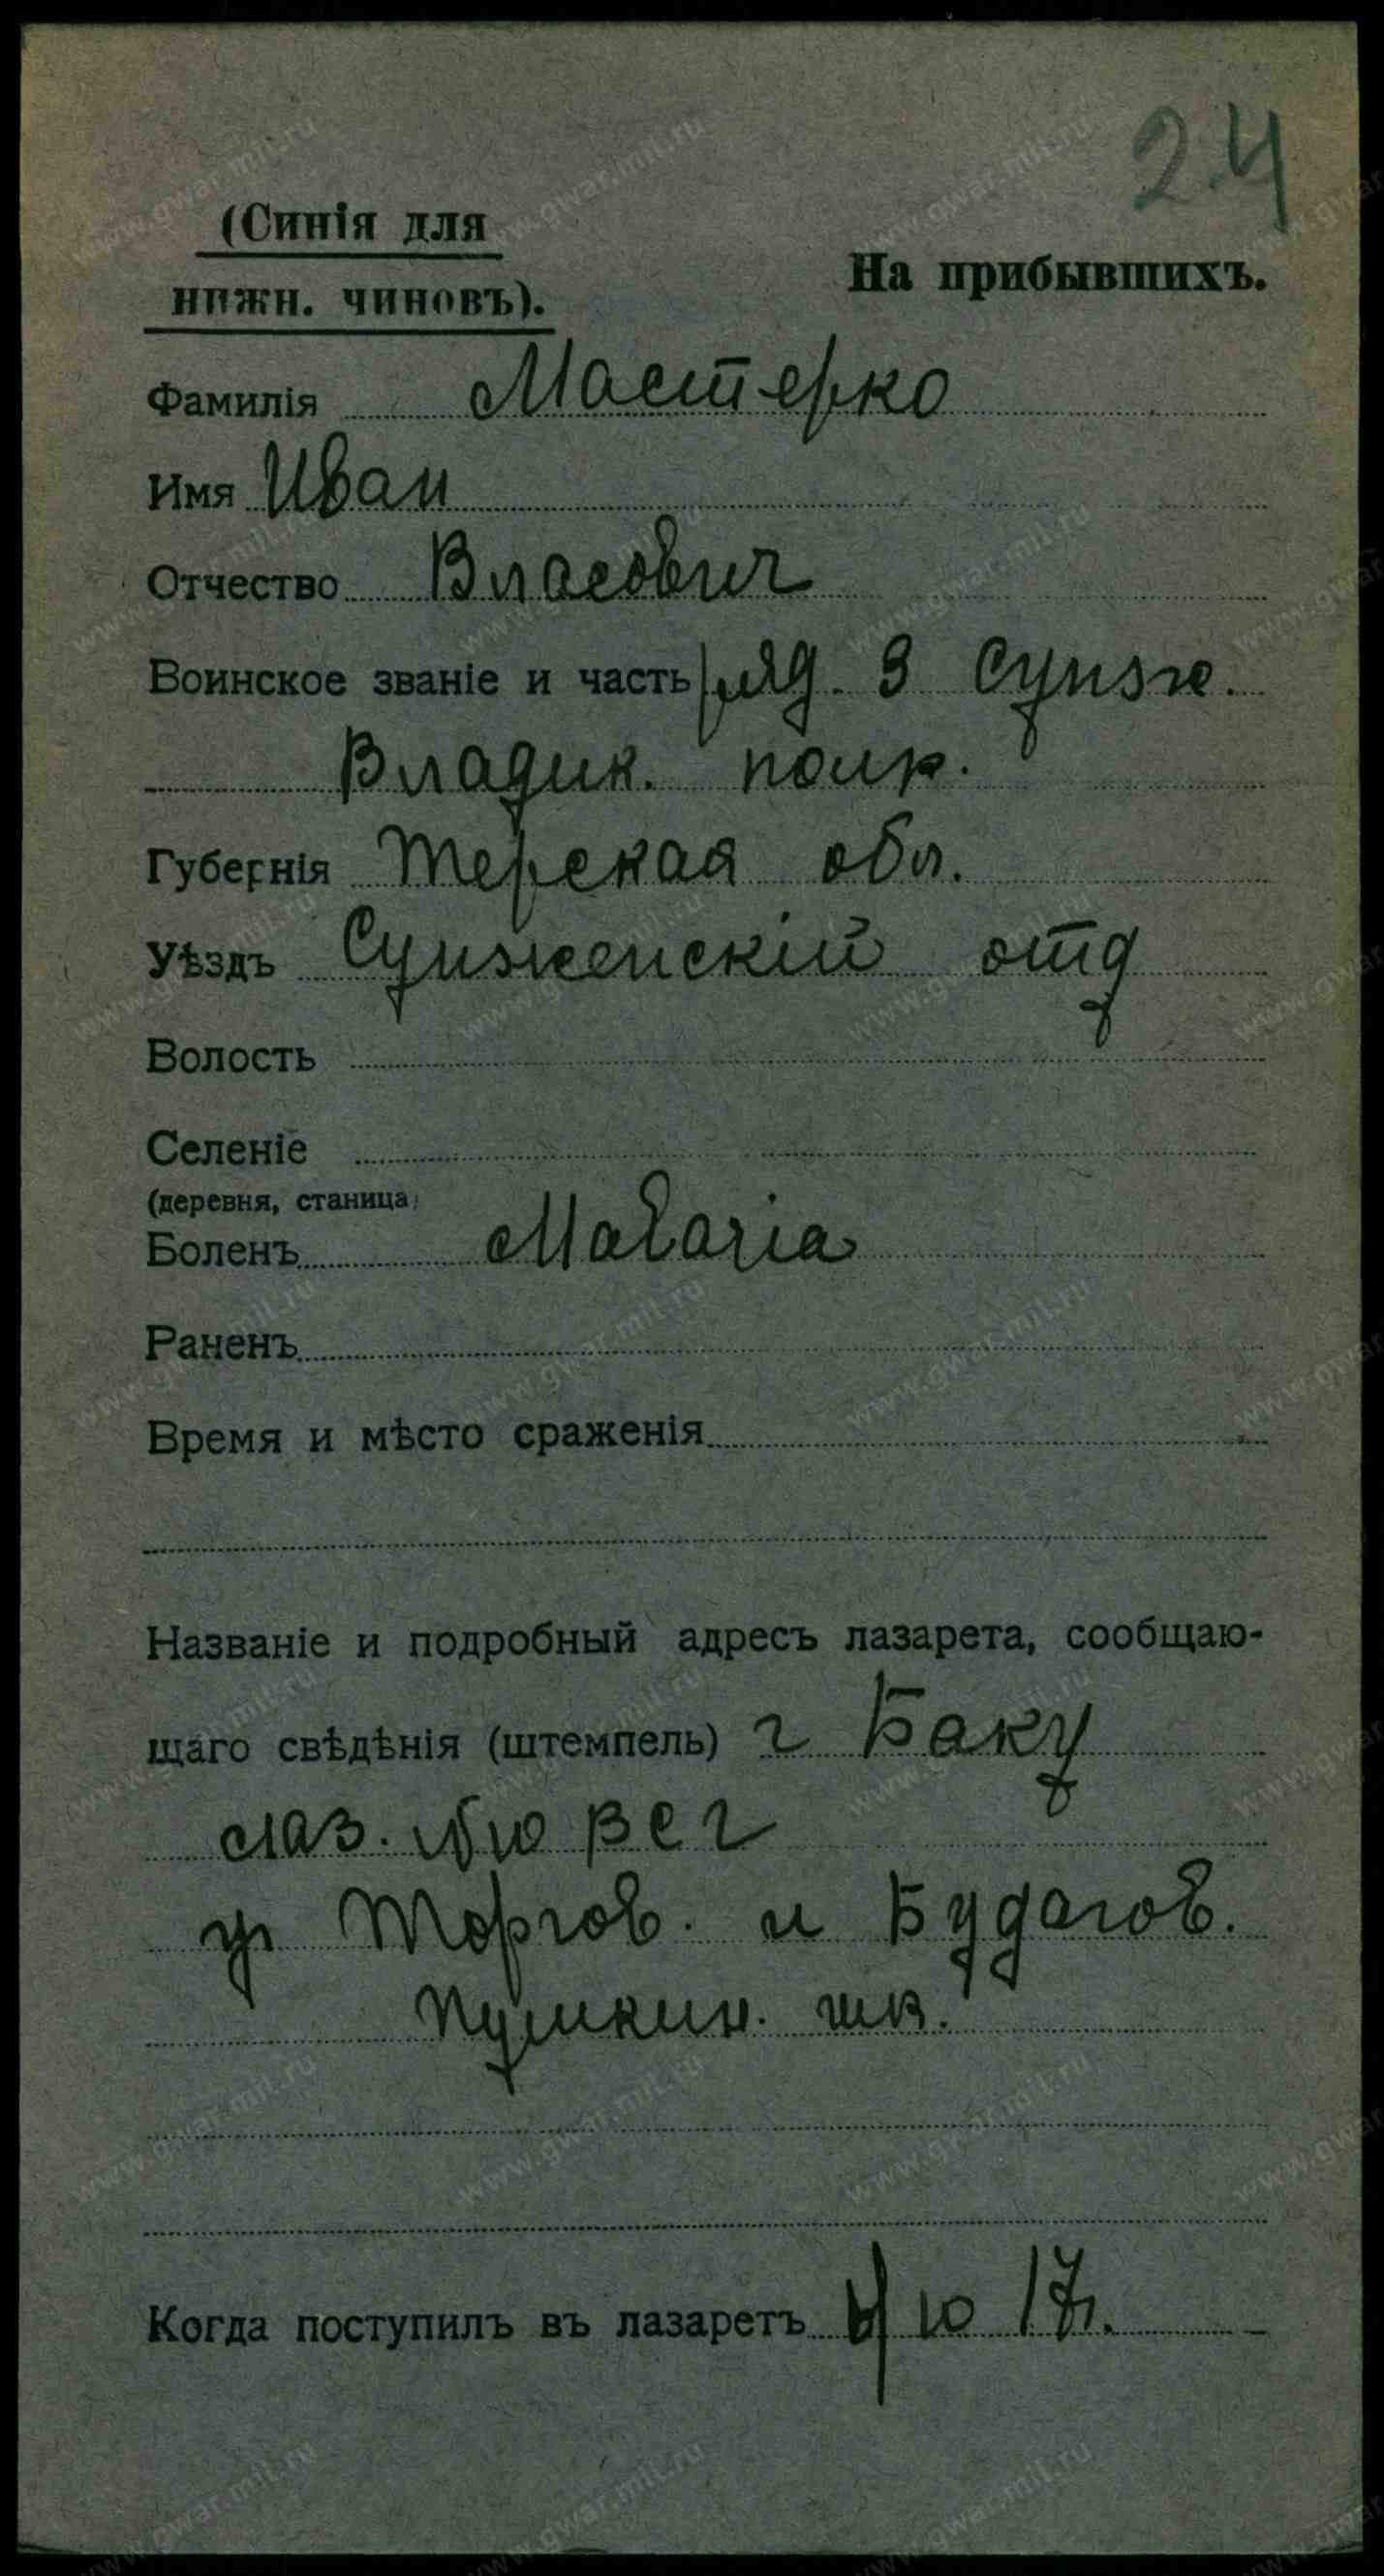 24
(Синія для
нижн. чиновъ).
На прибывшихъ.
Фамилія Мастерко
Имя Иван
Отчество Власович
Воинское званіе и часть ряд. 3 Сунж.
Владик. полк.
Губернія Терская обл.
Уѣздъ Сунженскій отд
Волость
Селеніе
(деревня, станица)
Боленъ Malaria
Раненъ
Время и мѣсто сраженія
Названіе и подробный адресъ лазарета, сообщаю-
щаго свѣдѣнія (штемпель) г Баку
лаз. В С Г
уг Торгов. и Будагов.
Пушкин. шк.
Когда поступилъ въ лазаретъ 10 17г.
www.gwar.mil.ru